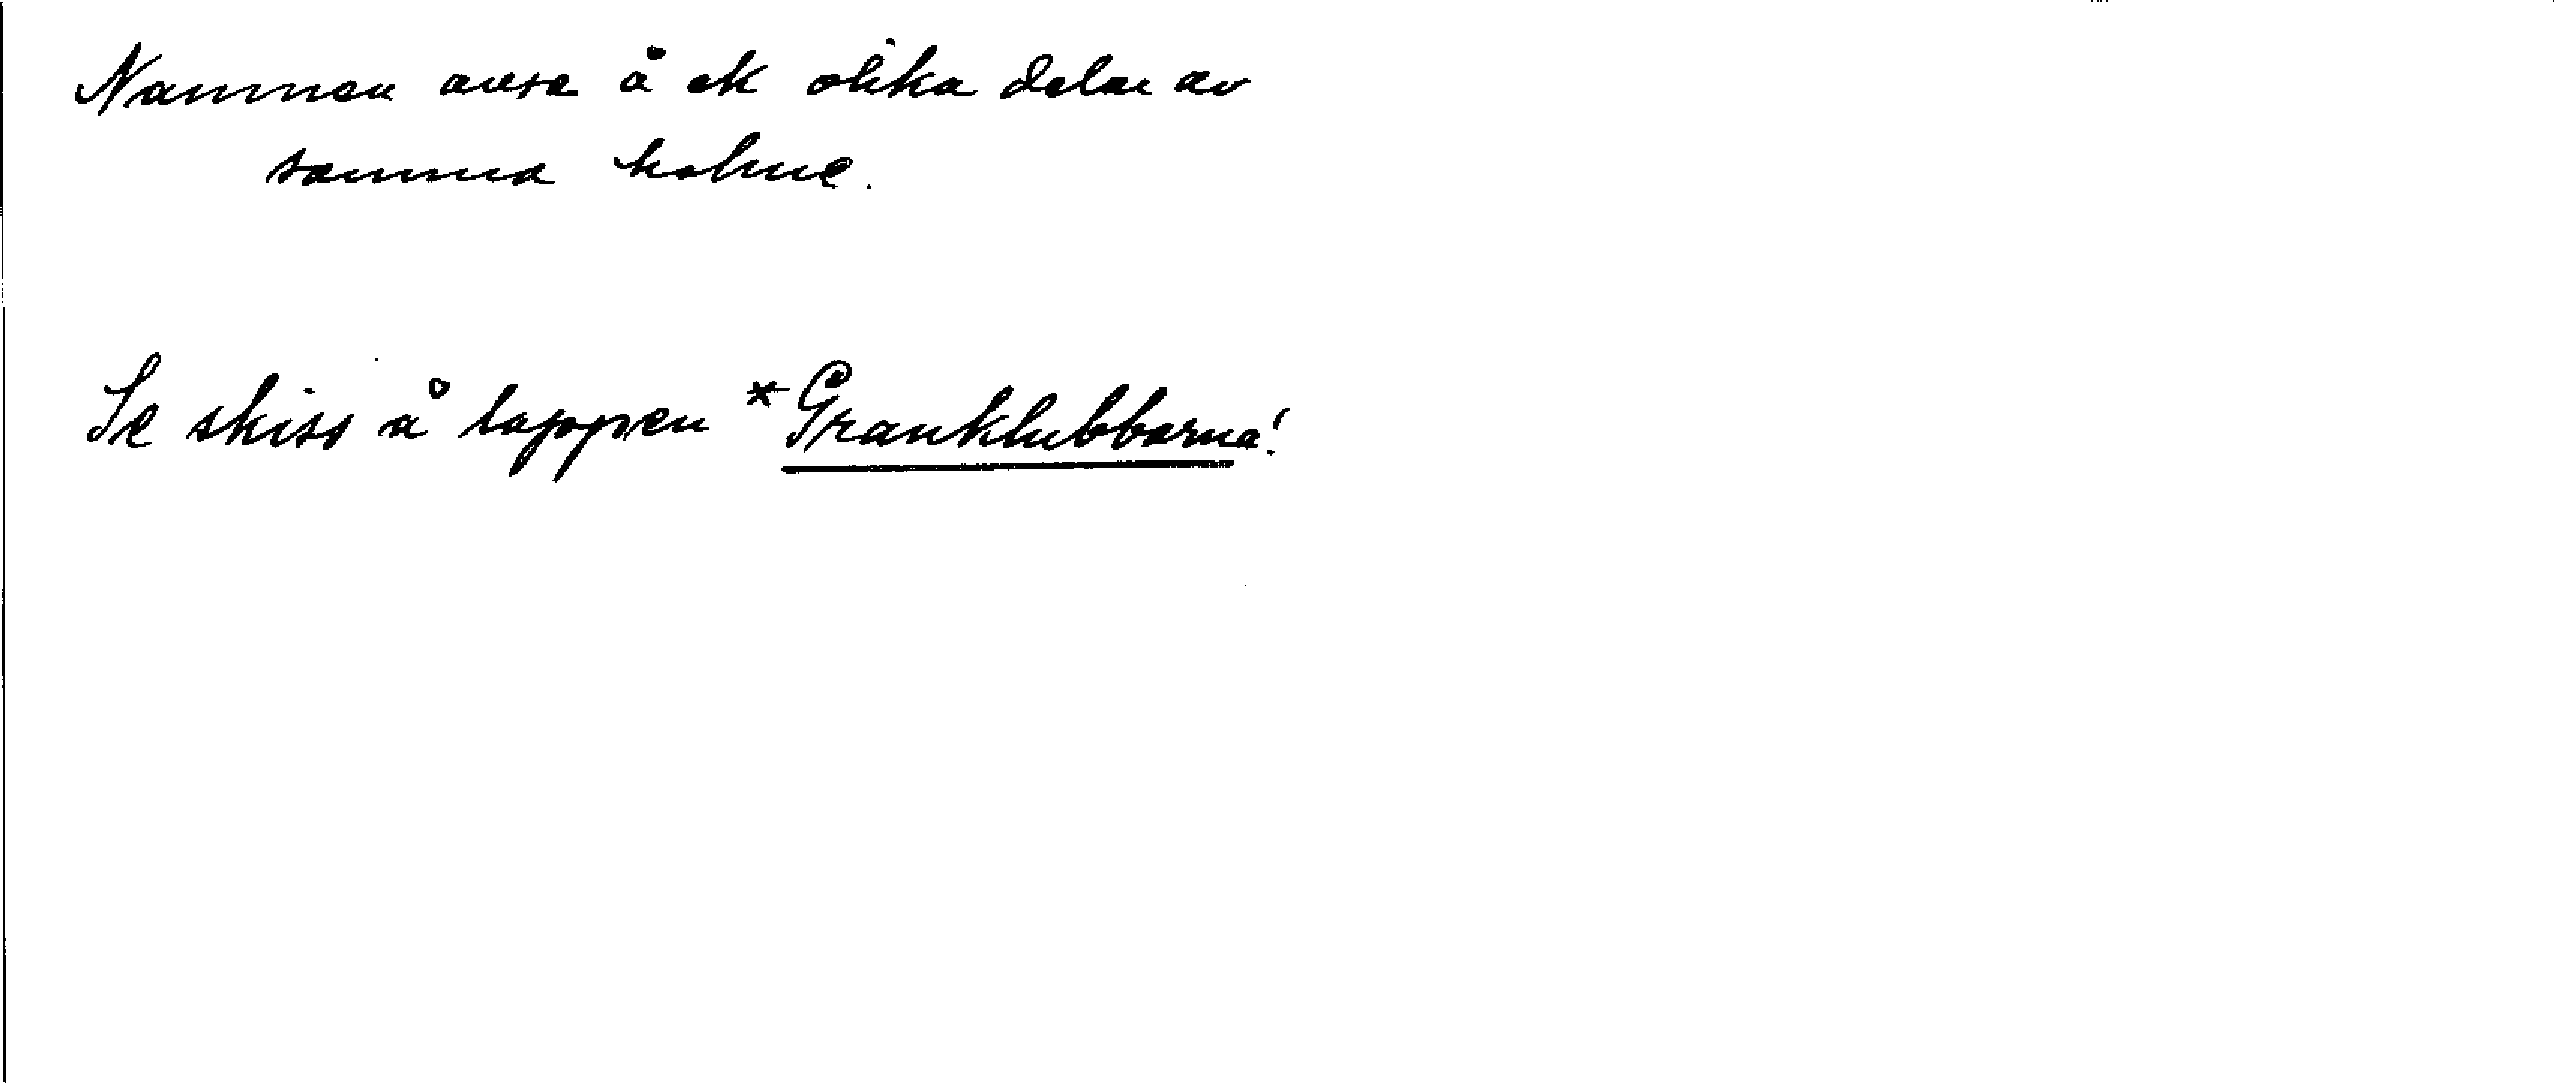 Namnen avse å ek olika delar av
samma holme.
Se skiss å lappen *Granklubbarna!